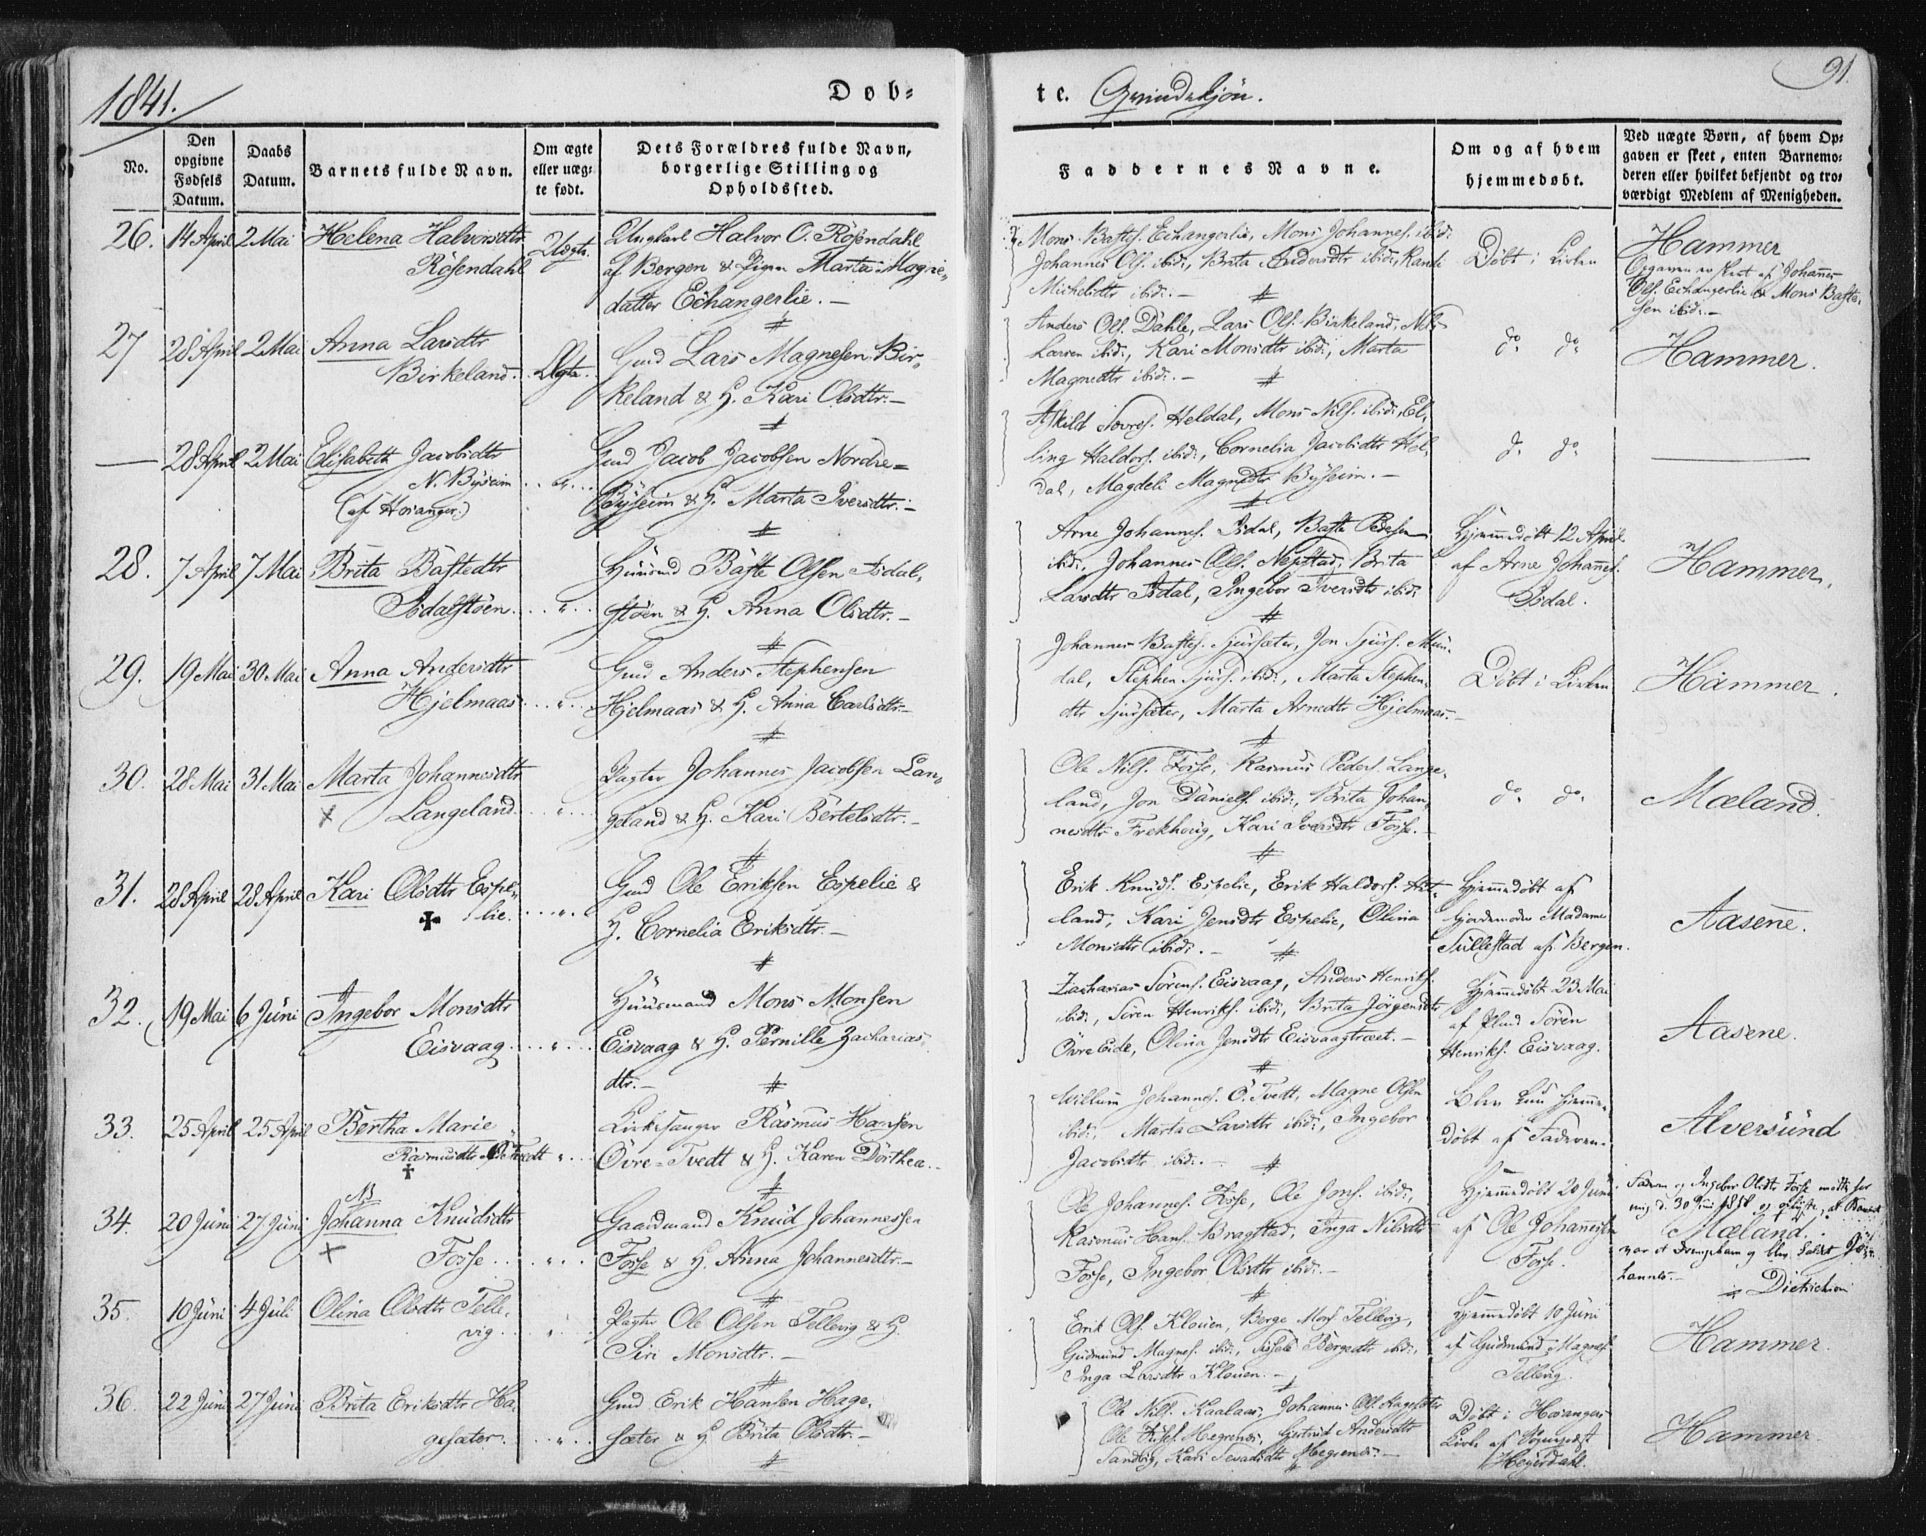 1841.
Døb=
te. Qvindekjön.
91.
No.
Den opgivne Fødsels Datum.
Daabs Datum.
Barnets fulde Navn.
Om ægte eller uæg= te født.
Dets Forældres fulde Navn, borgerlige Stilling og Opholdssted.
Faddernes Navne.
Om og af hvem hjemmedøbt.
Ved uægte Børn, af hvem Op= gaven er skeet, enten Barnemo= deren eller hvilket bekjendt og tro= værdigt Medlem af Menigheden.
26. 14 April 2 Mai Helena Halvorsdtr Uægte. Ungkarl Halvor O. Rösendahl
Rösendahl af Bergen & Pigen Marta Magne=
datter Echangerlie. —
Mons Bastes. Echangerlie, Mons Johannes. ibid:
Johannes Ols. ibid:, Brita Andersdtr ibid:, Randi
Michelsdtr ibid:. —
Döbt i Kirken
Hammer
Opgaven er skeet af Johannes
Ols. Echangerlie & Mons Baste=
sen ibid:—
27 28 April 2 Mai Anna Larsdtr
Birkeland. Ægte. Gmd Lars Magnesen Bir=
keland & H. Kari Olsdtr.—
Anders Ols. Dahle, Lars Ols. Birkeland, Nils
Larsen ibid:, Kari Monsdtr ibid:, Marta
Magnedtr ibid:. —
do do
Hammer.
— 28 April 2 Mai Elisabeth Jacobsdtr
N. Byseim
(af Hosanger)
Gmd Jacob Jacobsen Nordre=
Byseim & H. Marta Iversdtr.—
Askild Sovres. Heldal, Mons Nils. ibid:, El=
ling Haldors. ibid:, Cornelia Jacobsdtr Hel=
dal, Magdeli Magnedtr Byseim. —
do do
28. 7 April 7 Mai Brita Bastedtr
Isdalstöen.
Huusmd Baste Olsen Isdal=
stöen & H. Anna Olsdtr.—
Arne Johannes. Isdal, Baste Pedersen
ibid:, Johannes Ols. Nepstad, Brita
Larsdtr Isdal, Ingebor Iversdtr ibid:
Hjemmedöbt 12 April
af Arne Johannes.
Isdal.
Hammer.
29. 19 Mai 30 Mai Anna Andersdtr
Hjelmaas
Gmd Anders Stephensen
Hjelmaas & H. Anna Carlsdtr.—
Johannes Bastes. Sjursæter, Jon Sjurs. Mun=
dal, Stephen Sjurs. ibid:, Marta Stephen=
dtr Sjursæter, Marta Arnedtr Hjelmaas.—
Döbt i Kirken
Hammer.
30. 28 Mai 31 Mai Marta Johannesdtr
Langeland.
Pagter Johannes Jacobsen Lan=
geland & H. Kari Bertelsdtr.—
Ole Nils. Fosse, Rasmus Peders. Lange=
land, Jon Daniels. ibid:, Brita Johan=
nesdtr Frekhoug, Kari Iversdtr Fosse.—
do do
Mæland.
31. 28 April 28 April Kari Olsdtr Espe=
lie.
Gmd Ole Eriksen Espelie &
H. Cornelia Eriksdtr.—
Erik Knuds. Espelie, Erik Haldors. Het=
land, Kari Jensdtr Espelie, Olina
Monsdtr ibid:. —
Hjemmedöbt af
Gjordemoder Madame
Sullestad af Bergen.
Aasene.
32. 19 Mai 6 Juni Ingebor Monsdtr
Eisvaag.
Huusmand Mons Monsen
Eisvaag & H. Pernille Zacharias=
dtr.—
Zacharias Sörens. Eisvaag, Anders Henriks.
ibid:, Sören Henriks. ibid:, Brita Jörgensdtr
Övre Eide, Olina Jensdtr Eisvaagtræet.—
Hjemmedöbt 23 Mai
af Sören
Henriks. Eisvaag.
Aasene.
33. 25 April 25 April Bertha Marie
Rasmusdtr Ö. Tvedt
Kirkesanger Rasmus Hansen
Övre=Tvedt & H. Karen Dorthea.—
Willum Johannes. Ö. Tvett, Magne Olsen
ibid:, Marta Larsdtr ibid:, Ingebor
Jacobsdtr ibid:.—
Blev kun hjemme=
döbt af Faderen.
Alversund
34. 20 Juni 27 Juni NB
Johanna Knudsdtr
Fosse
Gaardmand Knud Johannessen
Fosse & H. Anna Johannesdtr.—
Ole Johannes. Fosse, Ole Jons. ibid:,
Rasmus Hans. Bragstad, Inga Nilsdtr
Fosse, Ingebor Olsdtr ibid:.—
Hjemmedöbt 20 Juni
af Ole Johannesen
Fosse.
Faderen og Ingebor Olsdtr Fosse mödte for
mig d. 30 Juni 1858 og oplyste, at Barnet
Mæland.
var et Drengebarn og blev kaldet Jo=
hannes.—
Dietrichson
35. 10 Juni 4 Juli Olina Olsdtr Telle=
vig.
Pagter Ole Olsen Tellevig & H.
Siri Monsdtr.—
Erik Ols. Kloven, Berge Mons. Tellevig,
Gudmund Magnes. ibid:, Sissela Bergedtr ibid:,
Inga Larsdtr Kloven.—
Hjemmedöbt 10 Juni
af Gudmund Magnes.
Tellevig.
Hammer.
36. 22 Juni 27 Juni Brita Eriksdtr Ha=
gesæter.
Gmd Erik Hansen Hage=
sæter & H. Brita Olsdtr.—
Ole Nils. Kaalaas, Johannes Ols. Hagesæter
Ole Hegrenes, Gjertrud Andersdtr
Sandvig, Kari Hegrenes.—
Döbt i Hosangers
Kirke af Sognepræst
Heyerdahl.
Hammer.